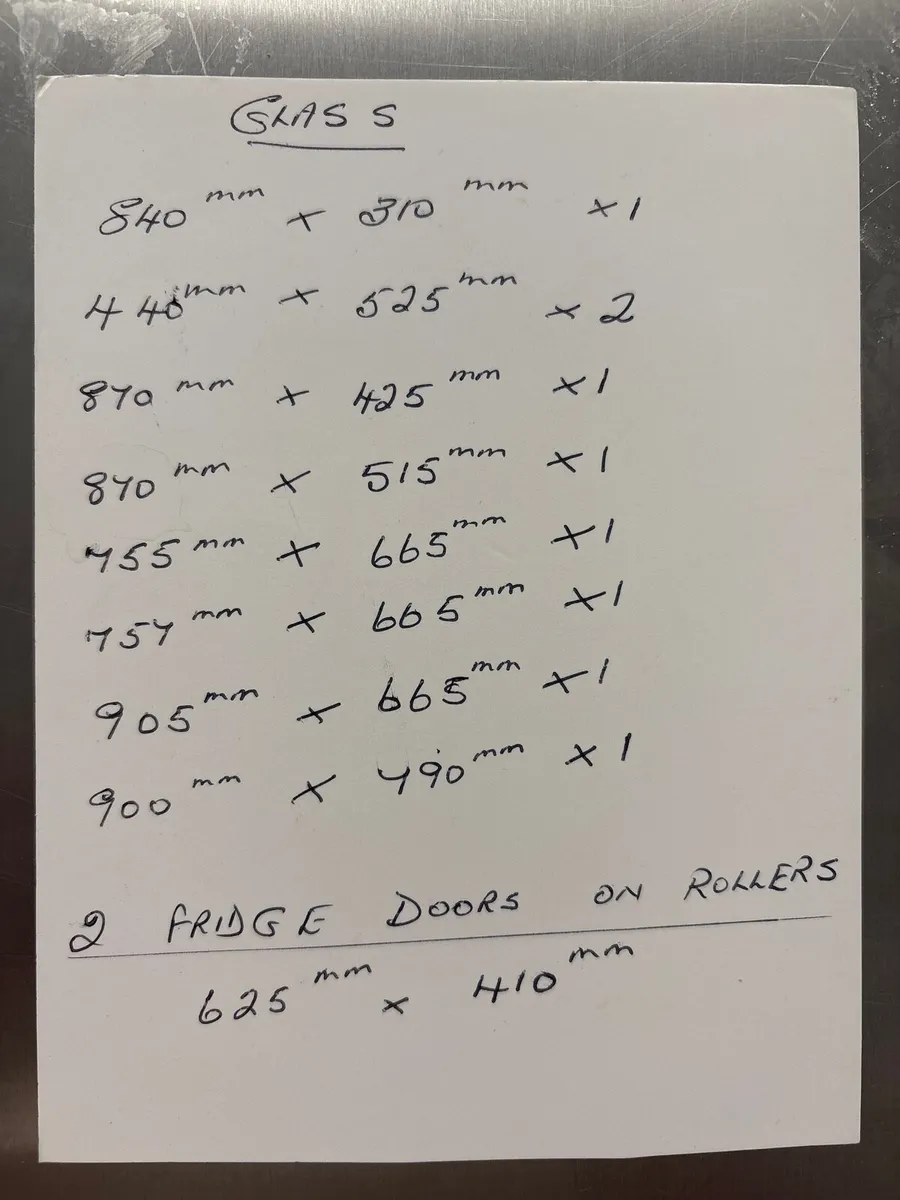 GLASS
840 mm x 310 mm x 1
440 mm x 525 mm x 2
870 mm x 425 mm x 1
870 mm x 515 mm x 1
755 mm x 665 mm x 1
757 mm x 665 mm x 1
905 mm x 665 mm x 1
900 mm x 790 mm x 1
2 FRIDGE DOORS ON ROLLERS
625 mm x 410 mm